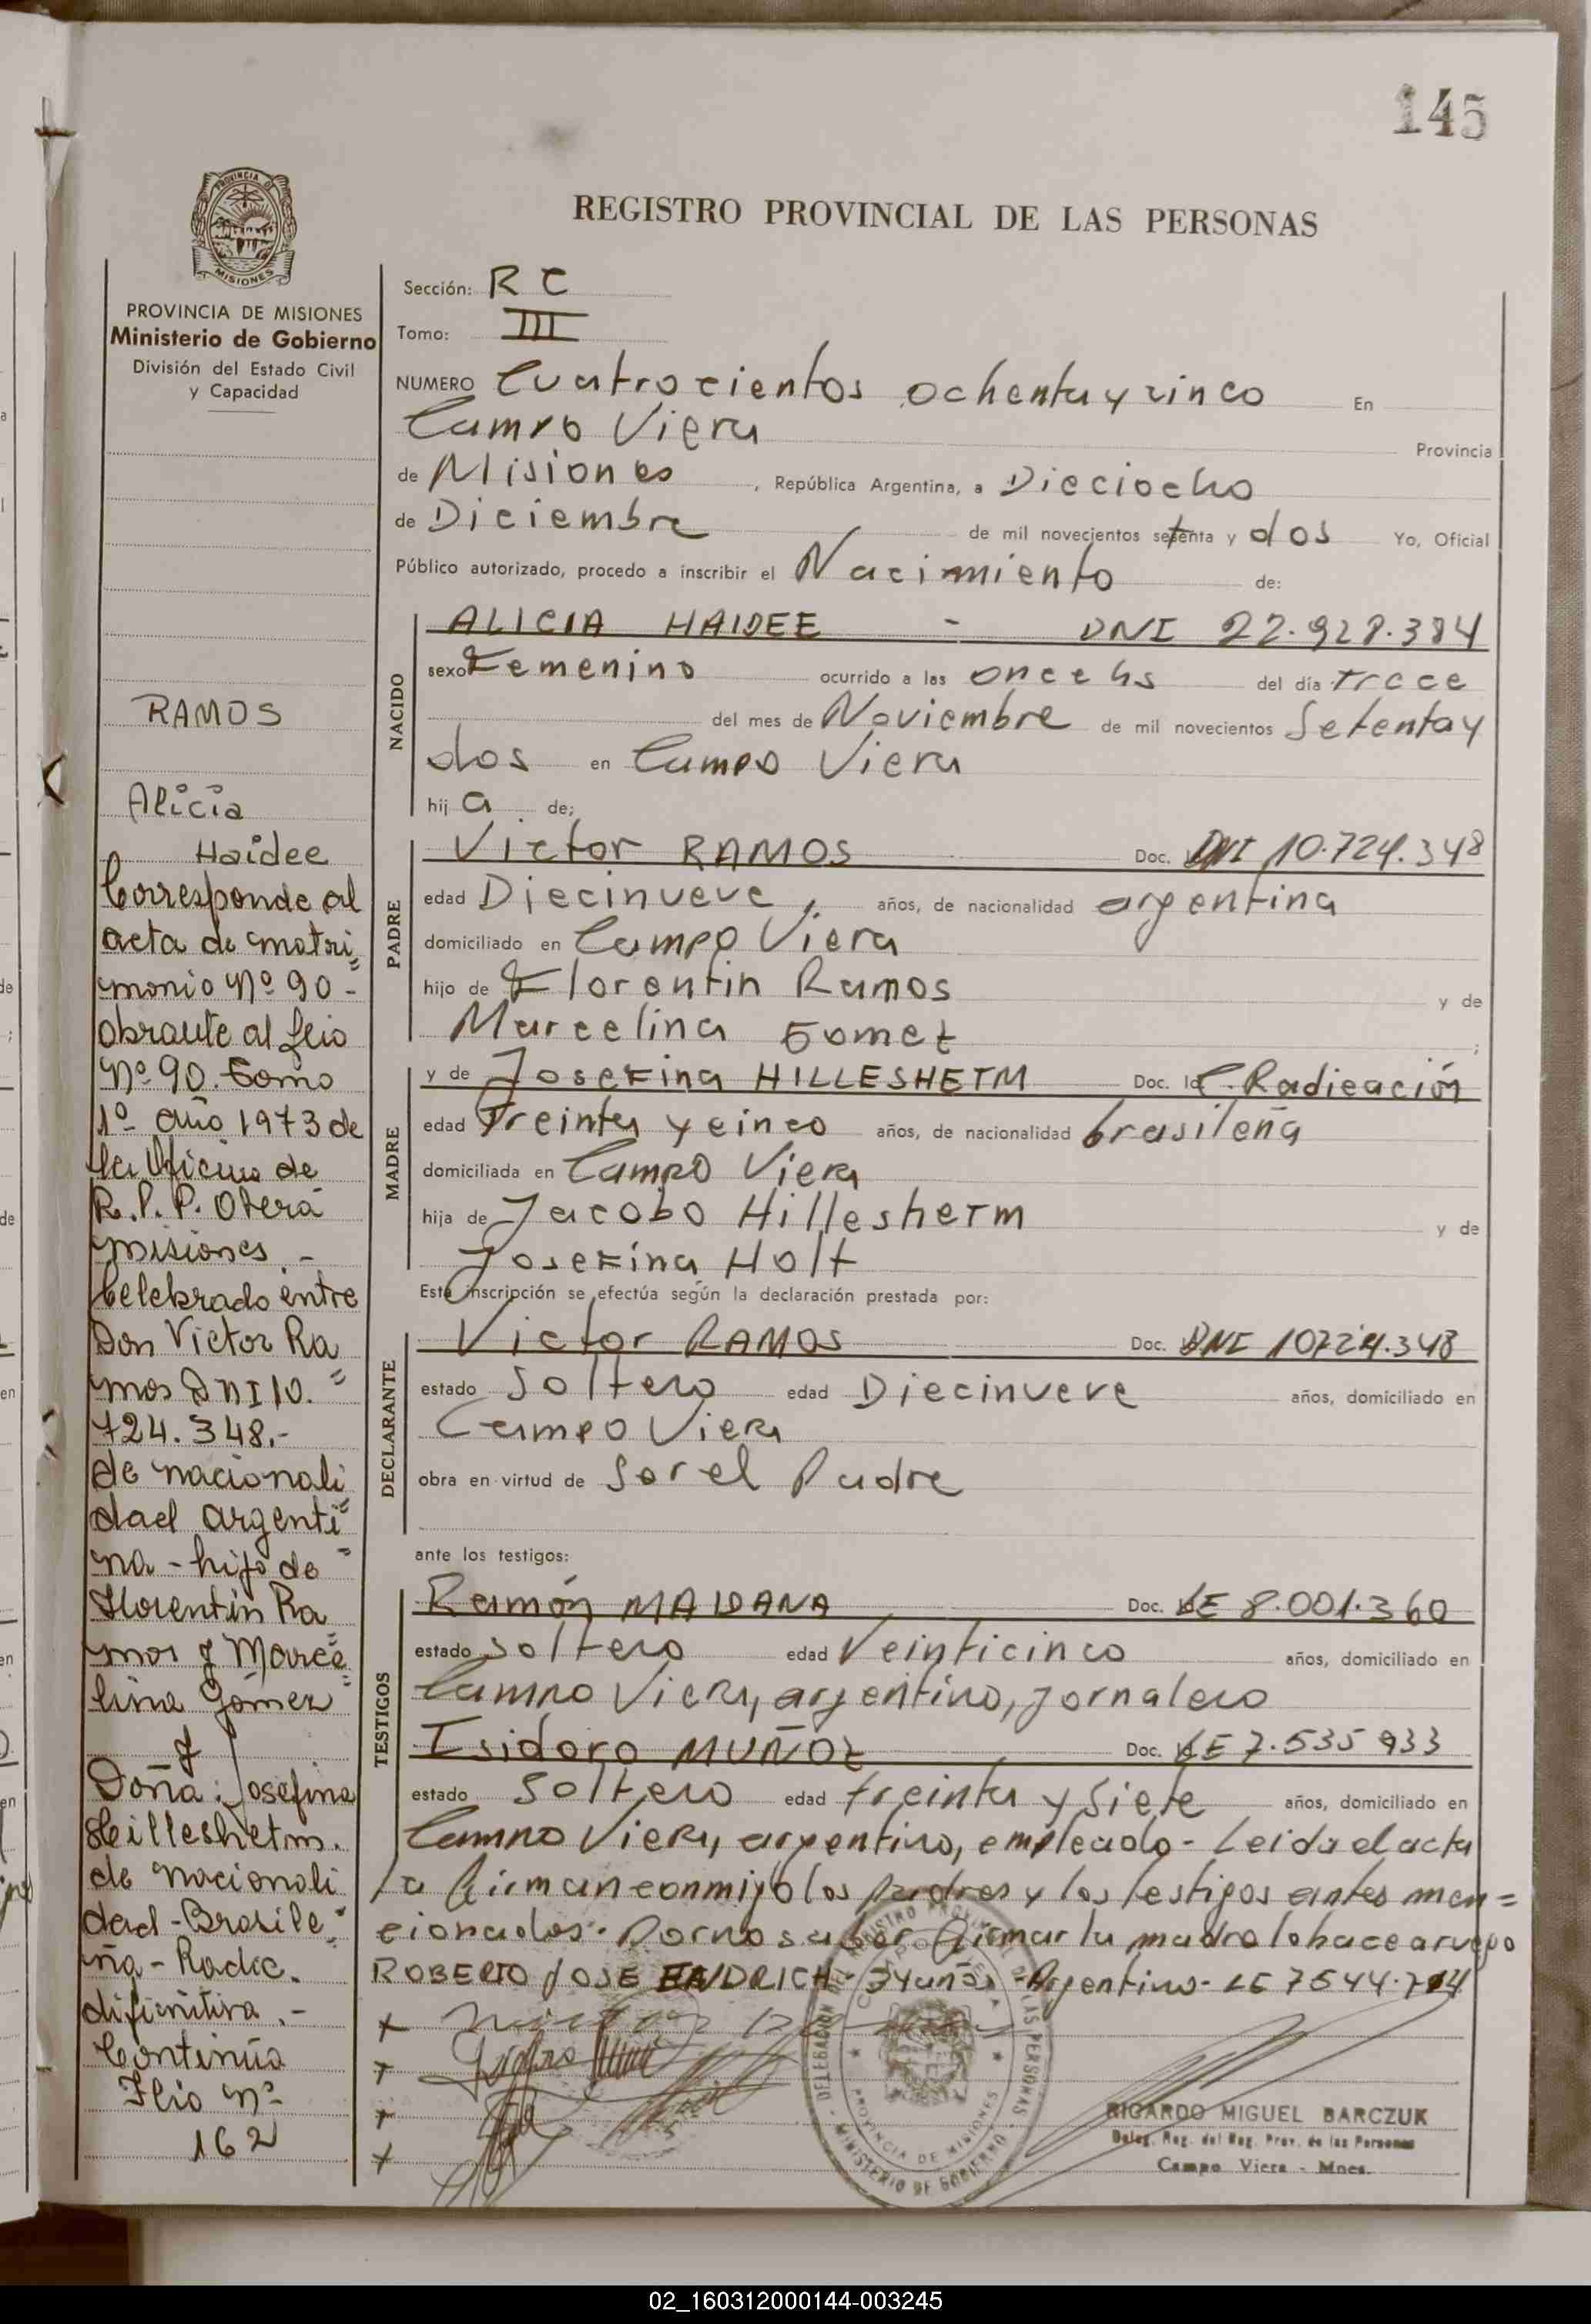 145
PROVINCIA DE
MISIONES
REGISTRO PROVINCIAL DE LAS PERSONAS
PROVINCIA DE MISIONES
Ministerio de Gobierno
División del Estado Civil
y Capacidad
RAMOS
Alicia
Haidee
Corresponde al
acta de matri=
monio Nº 90-
obrante al folio
Nº 90. Tomo
1º año 1973 de
la Oficina de
R.P.P. Oberá
misiones.-
Celebrado entre
Don Victor Ra
mos DNI 10.=
724.348.-
de nacionali
dad argenti=
na - hijo de=
Florentin Ra
mos y Marce=
lina Gómez=
y
Doña: Josefina
Hilleshetm.
de nacionali
dad - Brasile=
ña - Radic.
difinitiva.-
Continúa
Flio Nº
162
Sección: R C
Tomo: III
NUMERO Cuatrocientos ochenta y cinco En
Campo Viera Provincia
de Misiones, República Argentina, a Dieciocho
de Diciembre de mil novecientos setenta y dos Yo, Oficial
Público autorizado, procedo a inscribir el Nacimiento de:
NACIDO
ALICIA HAIDEE - DNI 22.928.384
sexo Femenino ocurrido a las once hs del día trece
del mes de Noviembre de mil novecientos Setenta y
dos en Campo Viera
hija de;
PADRE
Victor RAMOS Doc. DNI 10.724.348
edad Diecinueve, años, de nacionalidad argentina
domiciliado en Campo Viera
hijo de Florentin Ramos y de
Marcelina Gomez ;
MADRE
y de Josefina HILLESHETM Doc. Id C. Radicación
edad Treinta y cinco años, de nacionalidad brasileña
domiciliada en Campo Viera
hija de Jacobo Hillesherm y de
Josefina Holt
Esta inscripción se efectúa según la declaración prestada por:
DECLARANTE
Victor RAMOS Doc. DNI 10724.348
estado Soltero edad Diecinueve años, domiciliado en
Campo Viera
obra en virtud de Ser el Padre
ante los testigos:
TESTIGOS
Ramón MAIDANA Doc. LE 8.001.360
estado soltero edad Veinticinco años, domiciliado en
Campo Viera, argentino, jornalero
Isidoro MUÑOZ Doc. LE 7.535 933
estado Soltero edad treinta y Siete años, domiciliado en
Campo Viera, argentino, empleado - Leida el acta
la firman conmigo los padres y los testigos antes men=
cionados. Por no saber firmar la madre lo hace a ruego
ROBERTO JOSE - Argentino - LE
DELEGACION DEL REGISTRO PROVINCIAL DE LAS PERSONAS
MINISTERIO DE GOBIERNO
PROVINCIA DE MISIONES
RICARDO MIGUEL BARCZUK
Deleg. Reg. del Reg. Prov. de las Personas
Campo Viera - Mnes.
02_160312000144-003245